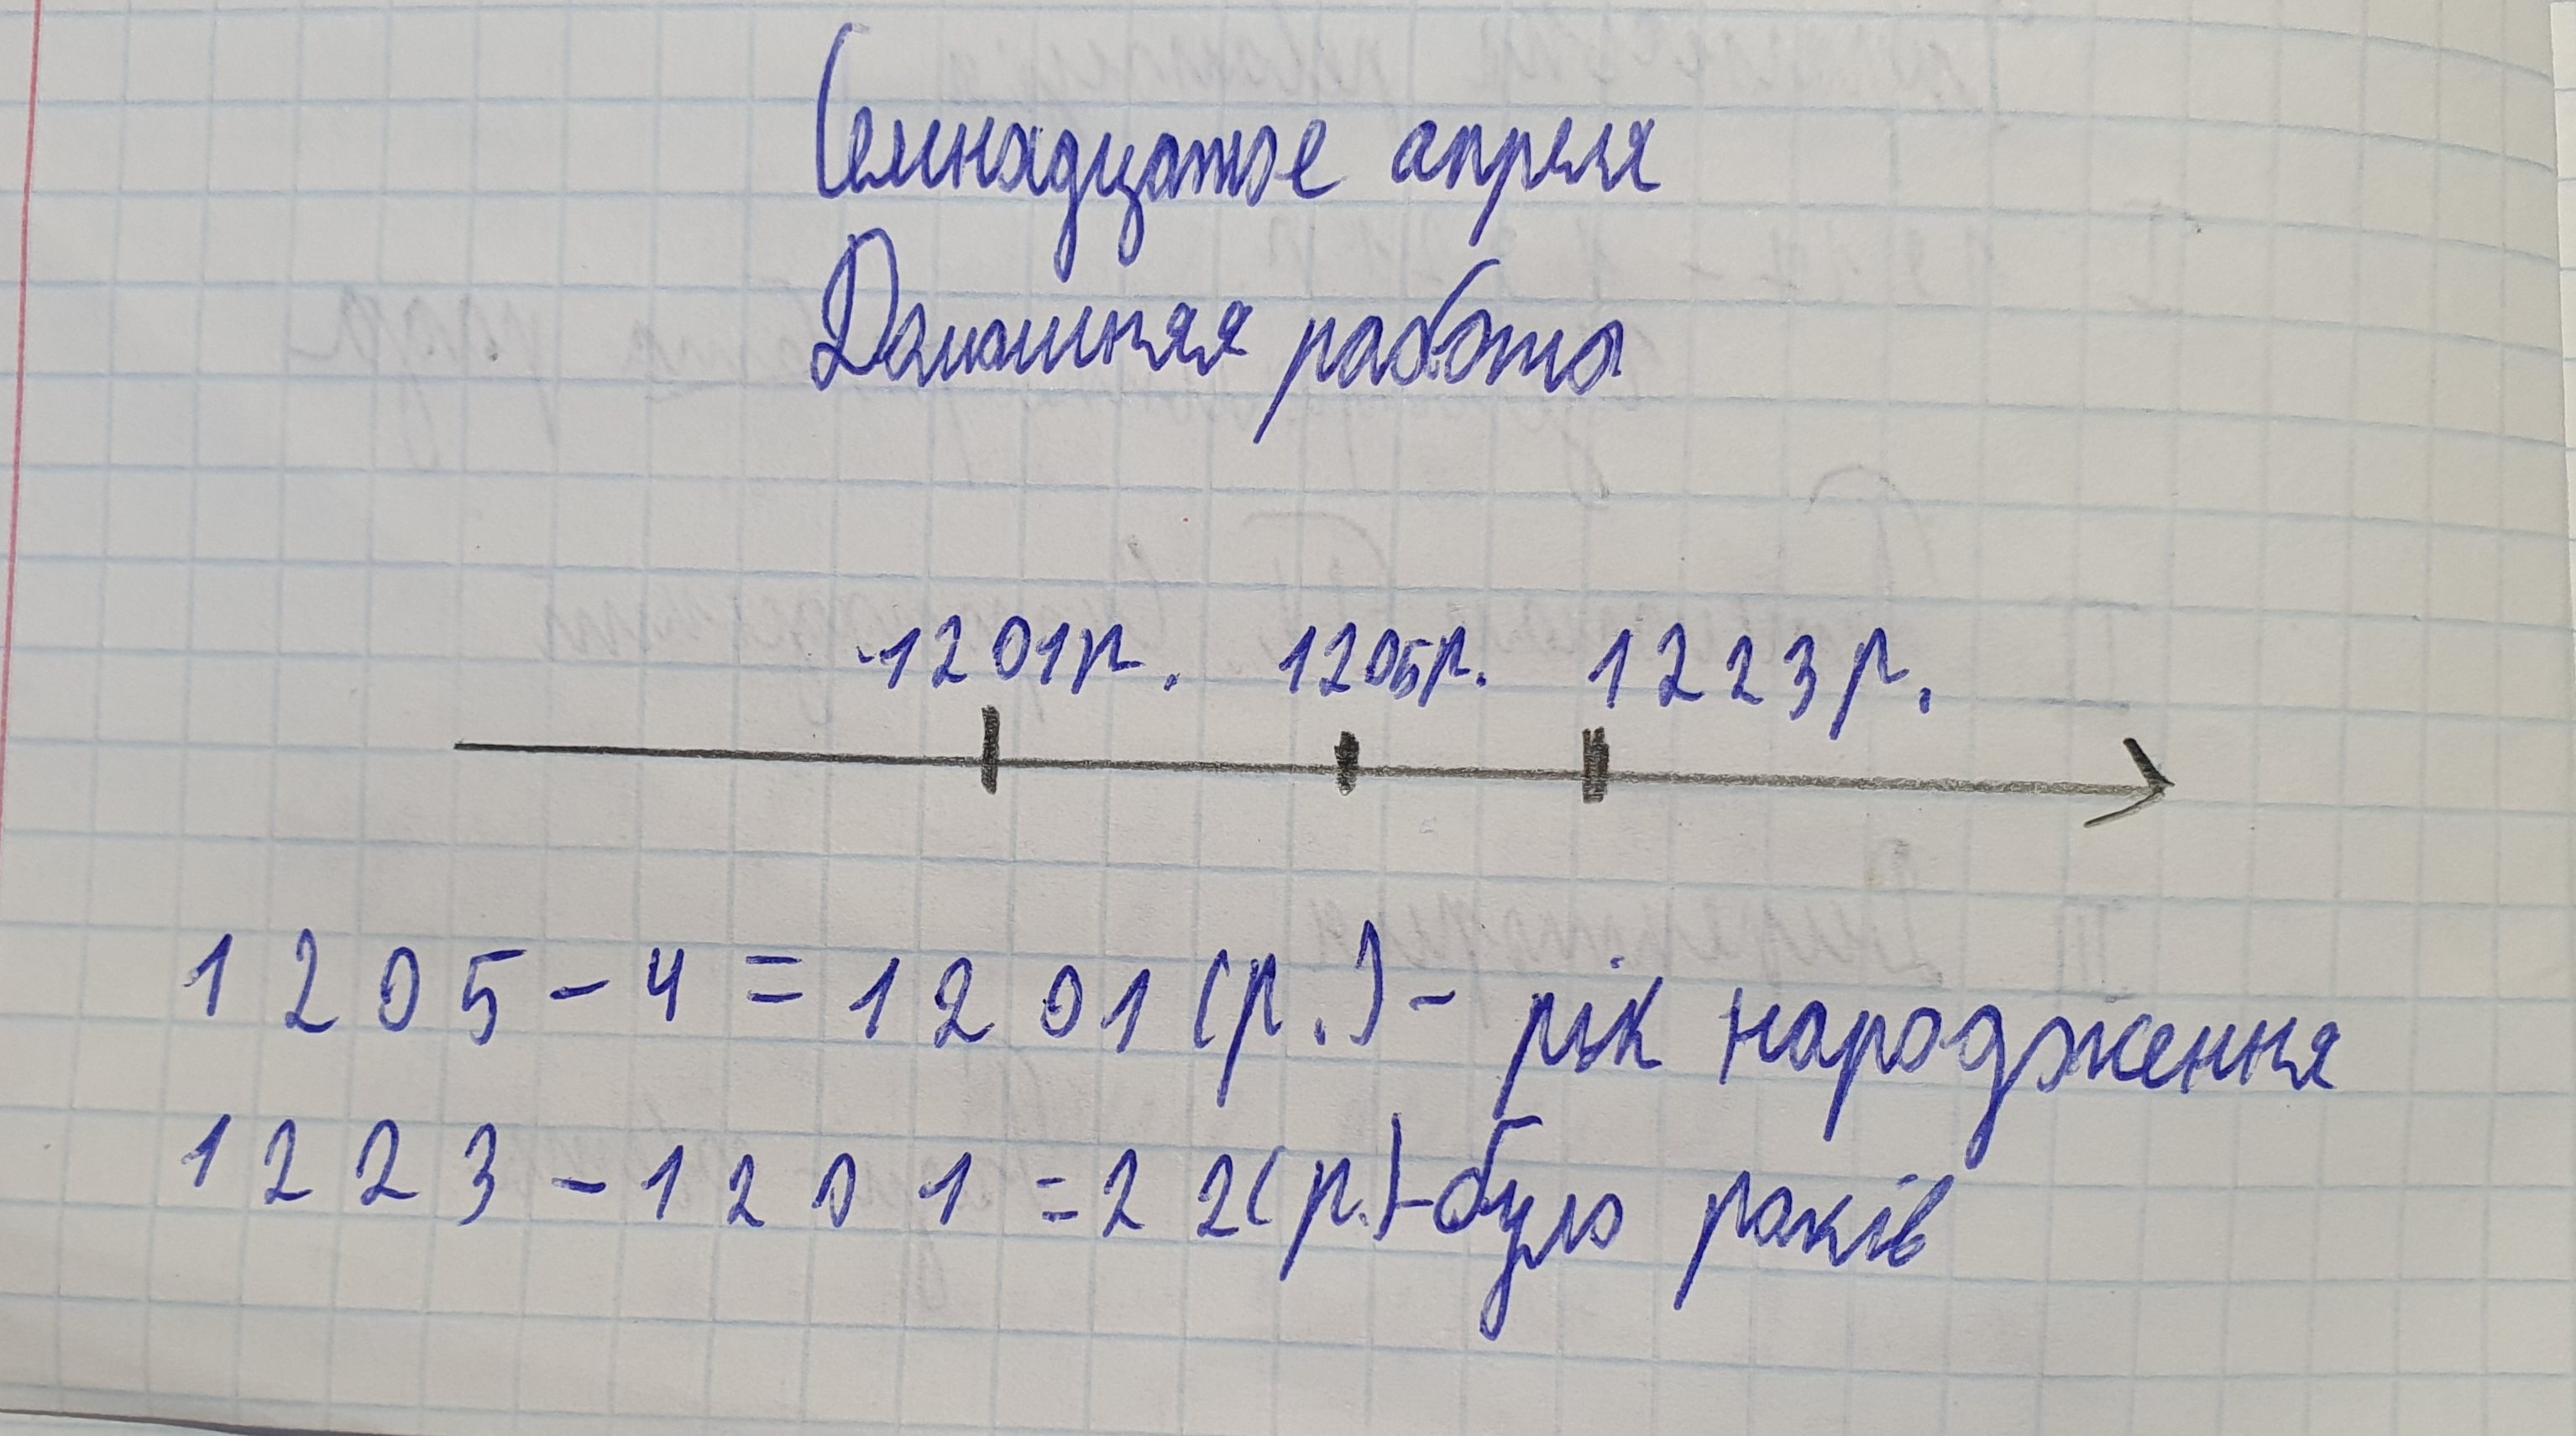 Семнадцатое апреля
Домашняя работа
1201р. 1205р. 1223р.
1205-4=1201(р.)- рік народження
1223-1201=22(р.)-було років